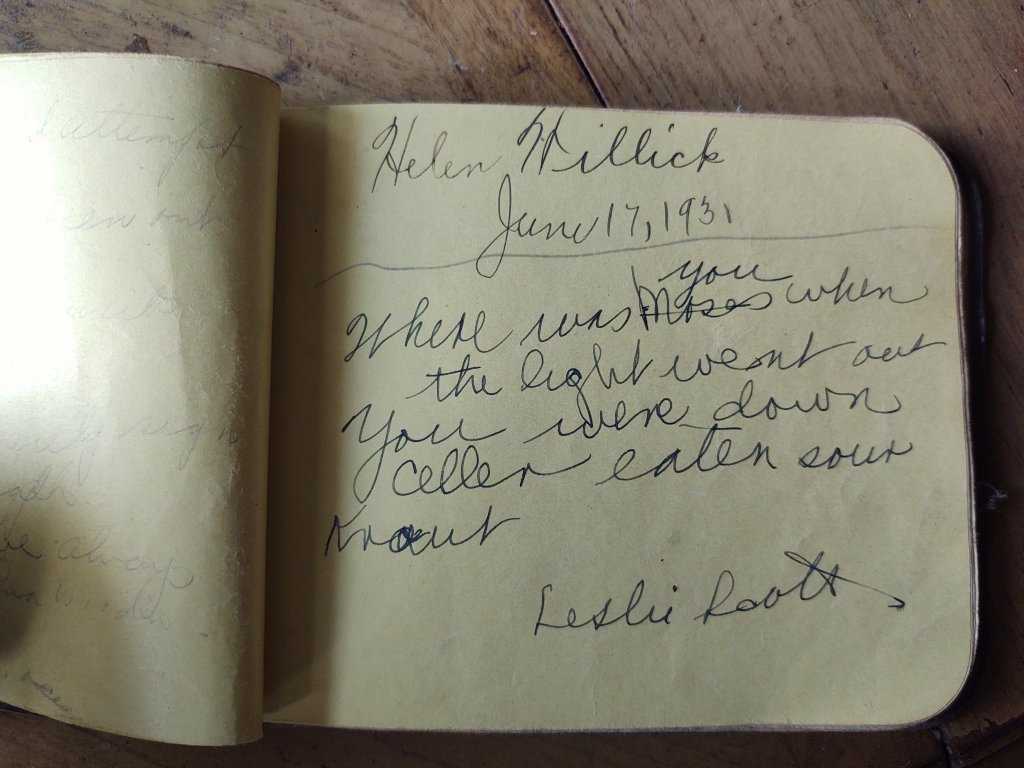 d attempt
Helen Willick
June 17, 1931
you
Where was Moses when
the light went out
You were down
celler eaten sour
Kraut
Leslie Scott